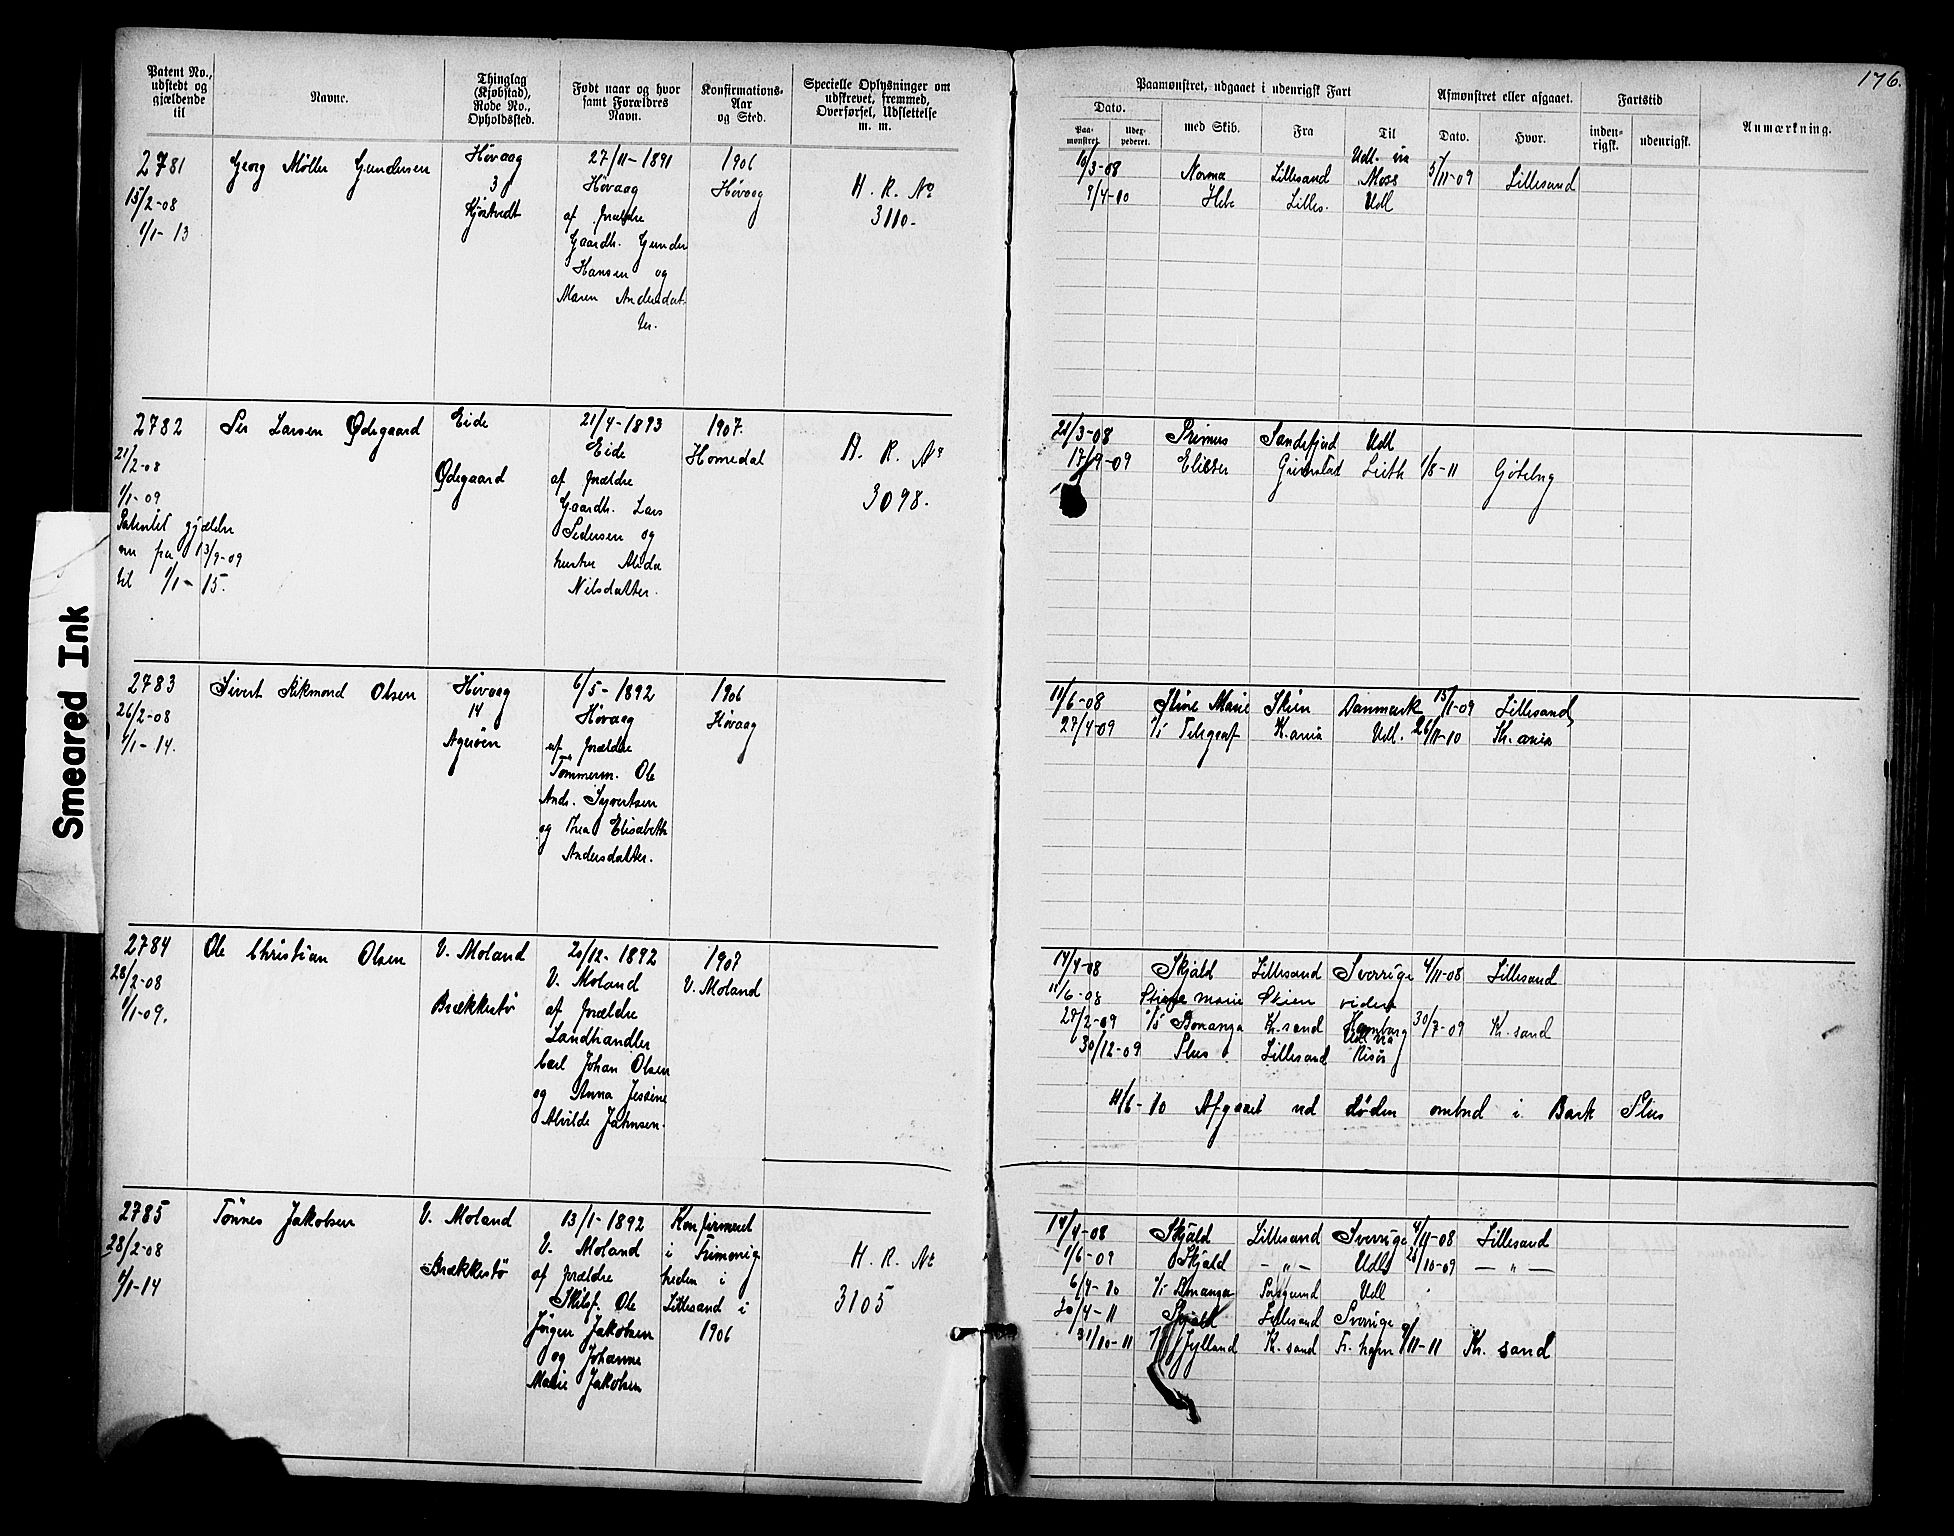 176.
Patent No., udstedt og gjældende til
Navne.
Thinglag (Kjøbstad), Rode No., Opholdssted.
Født naar og hvor samt Forældres Navn.
Konfirmations-Aar og Sted.
Specielle Oplysninger om udskrevet, fremmed, Overførsel, Udslettelse m. m.
Paamønstret, udgaaet i udenrigsk Fart
Dato.
Paa-mønstret.
Uder-pederet.
med Skib.
Fra
Til
Afmønstret eller afgaaet.
Dato.
Hvor.
Fartstid
inden-rigsk.
udenrigsk.
Anmærkning.
2781
15/2-08
1/1-13
Georg Møller Gundersen
Høvaag
3
27/11-1891
Høvaag
af forældre
Gaardb. Gunder
Hansen og
Maren Andersdat-
ter.
1906
Høvaag
H. R. No
3110.
10/3-08 Norma Lillesand Udl. via Moss 5/11-09 Lillesand
9/4-10 Hebe Lilles. Udl
2782
21/2-08
1/1-09
Patentet gjælder
nu fra 13/9-09
til 1/1-15.
Per Larsen Ødegaard
Eide
Ødegaard
21/4-1893
Eide
af forældre
Gaardb. Lars
Pedersen og
hustru Alida
Nilsdatter.
1907.
Homedal
H. R. No
3098.
21/3-08 Primus Sandefjord Udl
17/9-09 Elieser Grimstad Leith 1/8-11 Göteborg
2783
26/2-08
1/1-14.
Sivert Sikmond Olsen
Høvaag
14
Agerøen
6/5-1892
Høvaag
af forældre
Tømmerm. Ole
Andr. Syvertsen
og Thea Elisabeth
Andersdatter.
1906
Høvaag
11/6-08 Stine Marie Skien Danmark 15/1-09 Lillesand
27/4-09 s/s Telegraf K.ania Udl. 26/11-10 Kr.ania
2784
28/2-08
1/1-09.
Ole Christian Olsen
V. Moland
Brækkestø
20/12-1892
V. Moland
af forældre
Landhandler
Carl Johan Olsen
og Anna Jessine
Alvilde Jahnsen.
1907
V. Moland
14/4-08 Skjold Lillesand Sverrige 4/11-08 Lillesand
11/6-08 Stine Marie Skien videre
27/2-09 s/s Bonanza Kr.sand Hamburg 30/7-09 Kr.sand
30/12-09 Plus Lillesand Udl via Risør
11/6-10 Afgaaet ved døden ombord i Bark Plus
2785
28/2-08
1/1-14
Tønnes Jakobsen
V. Moland
Brækkestø
13/1-1892
V. Moland
af forældre
Skibsf. Ole
Jørgen Jakobsen
og Johanne
Marie Jakobsen
Konfirmeret
i Frimenig-
heden i
Lillesand i
1906
H. R. No
3105
14/4-08 Skjold Lillesand Sverrige 4/11-08 Lillesand
1/6-09 Skjold — „ — Udl 28/10-09 — „ —
6/4-10 Porsgrund Udl
20/4-11 Skjold Lillesand Sverrige
31/10-11 Jylland Kr.sand Fr.havn 9/11-11 Kr.sand
Smeared Ink